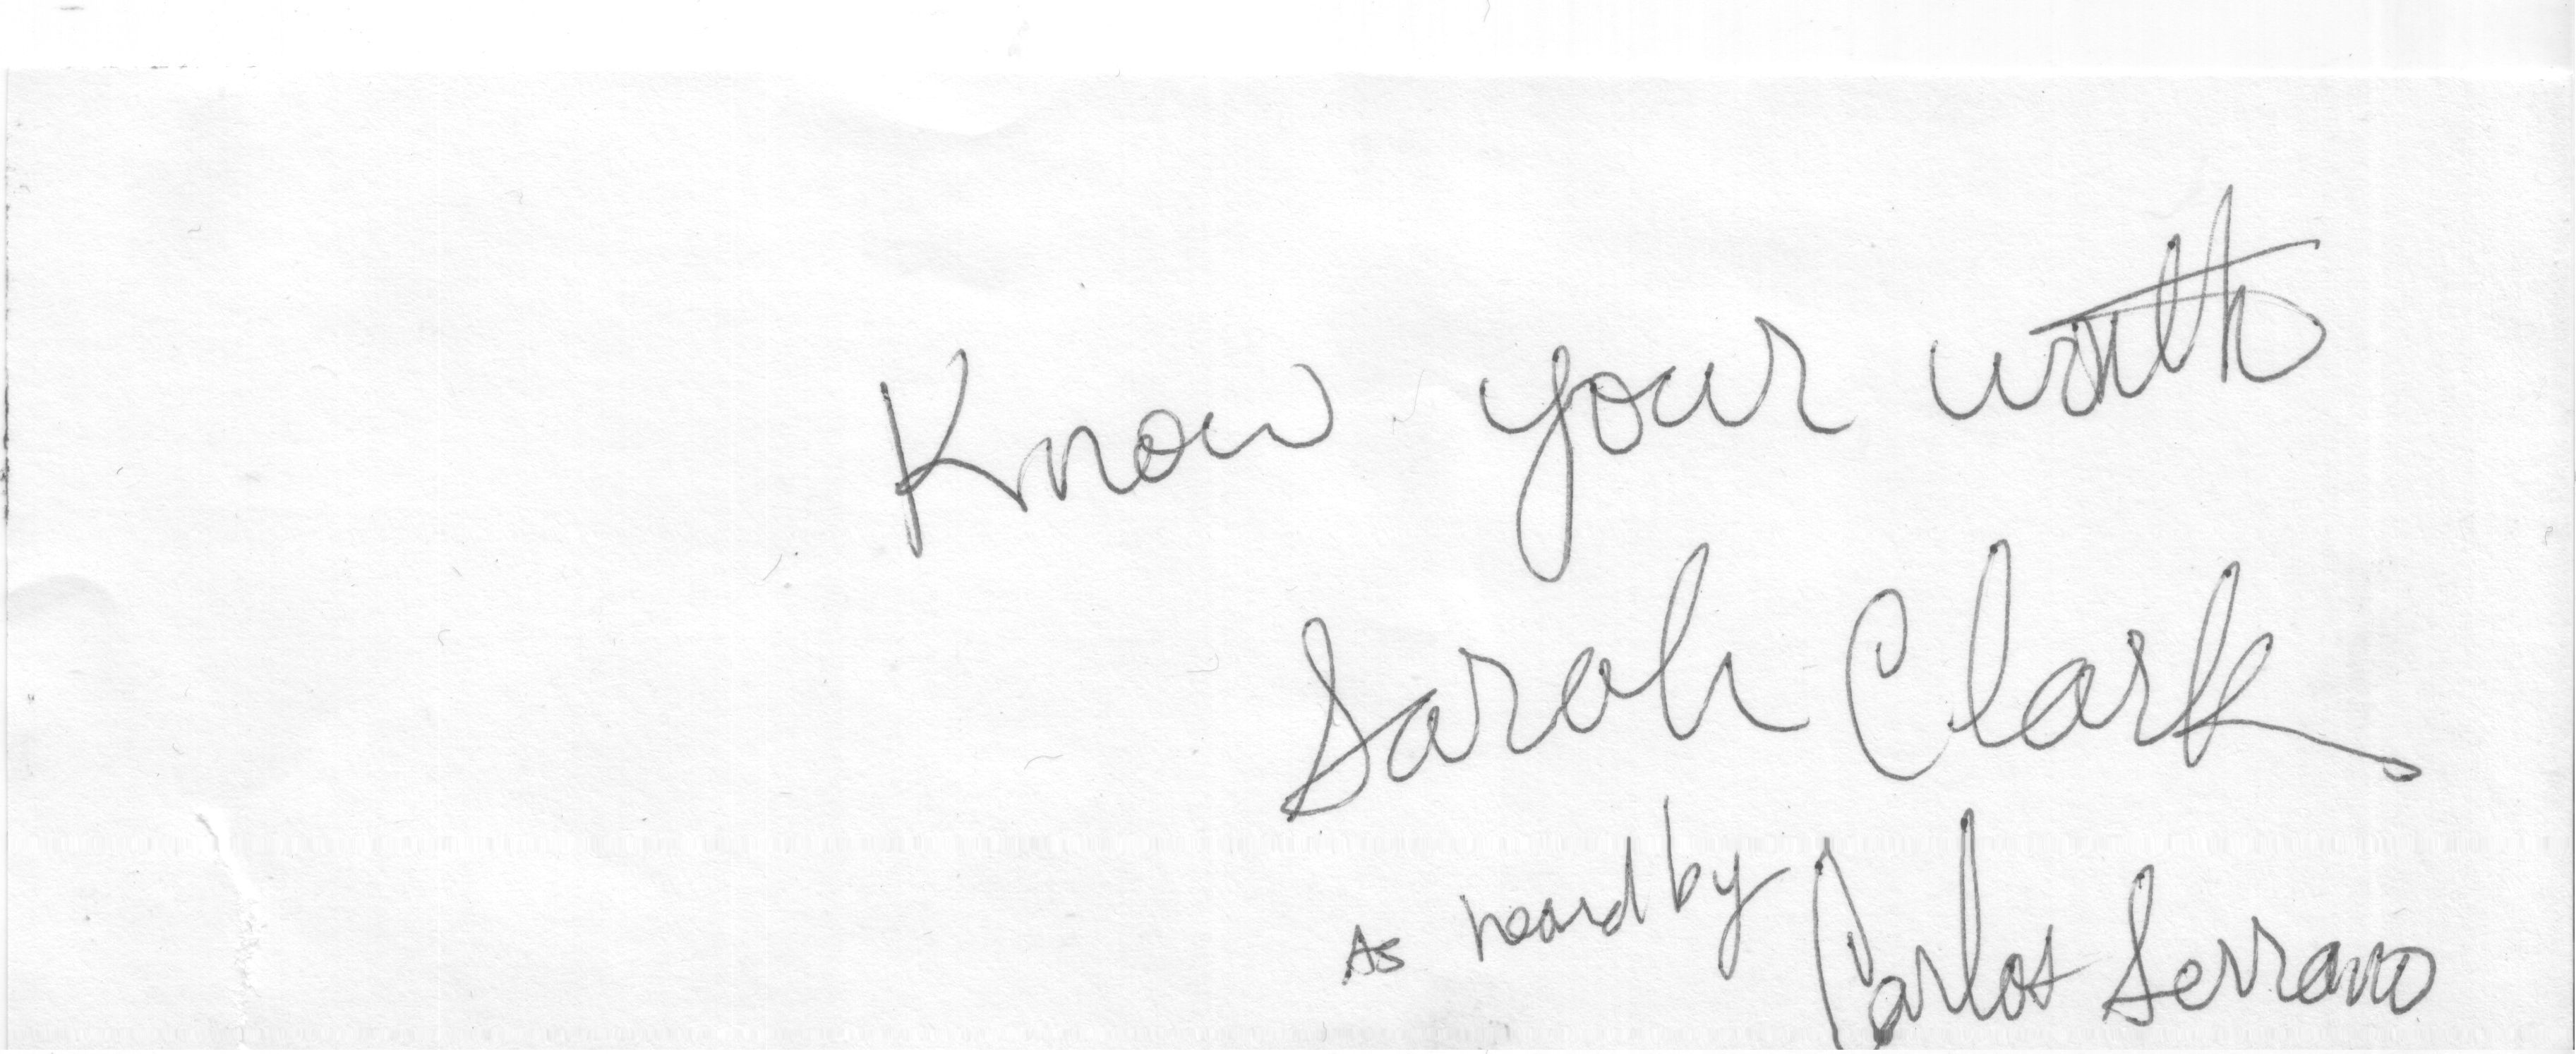 Know your worth
Sarah Clark
As heard by Carlos Serrano